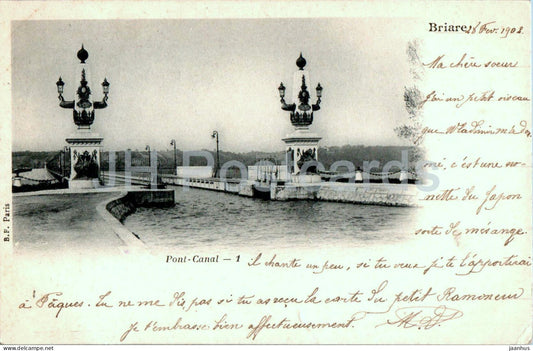 Briare, 28 Fev. 1902
Ma chère soeur
J'ai un petit oiseau
que Wladimir m'a don
né, c'est une son
nette du Japon
sorte de mésange.
Pont-Canal — 1
Il chante un peu, si tu veux je te l'apporterai
à Pâques. Tu ne me dis pas si tu as reçu la carte du petit Ramoneur
je t'embrasse bien affectueusement.
B. F. Paris
Postcards